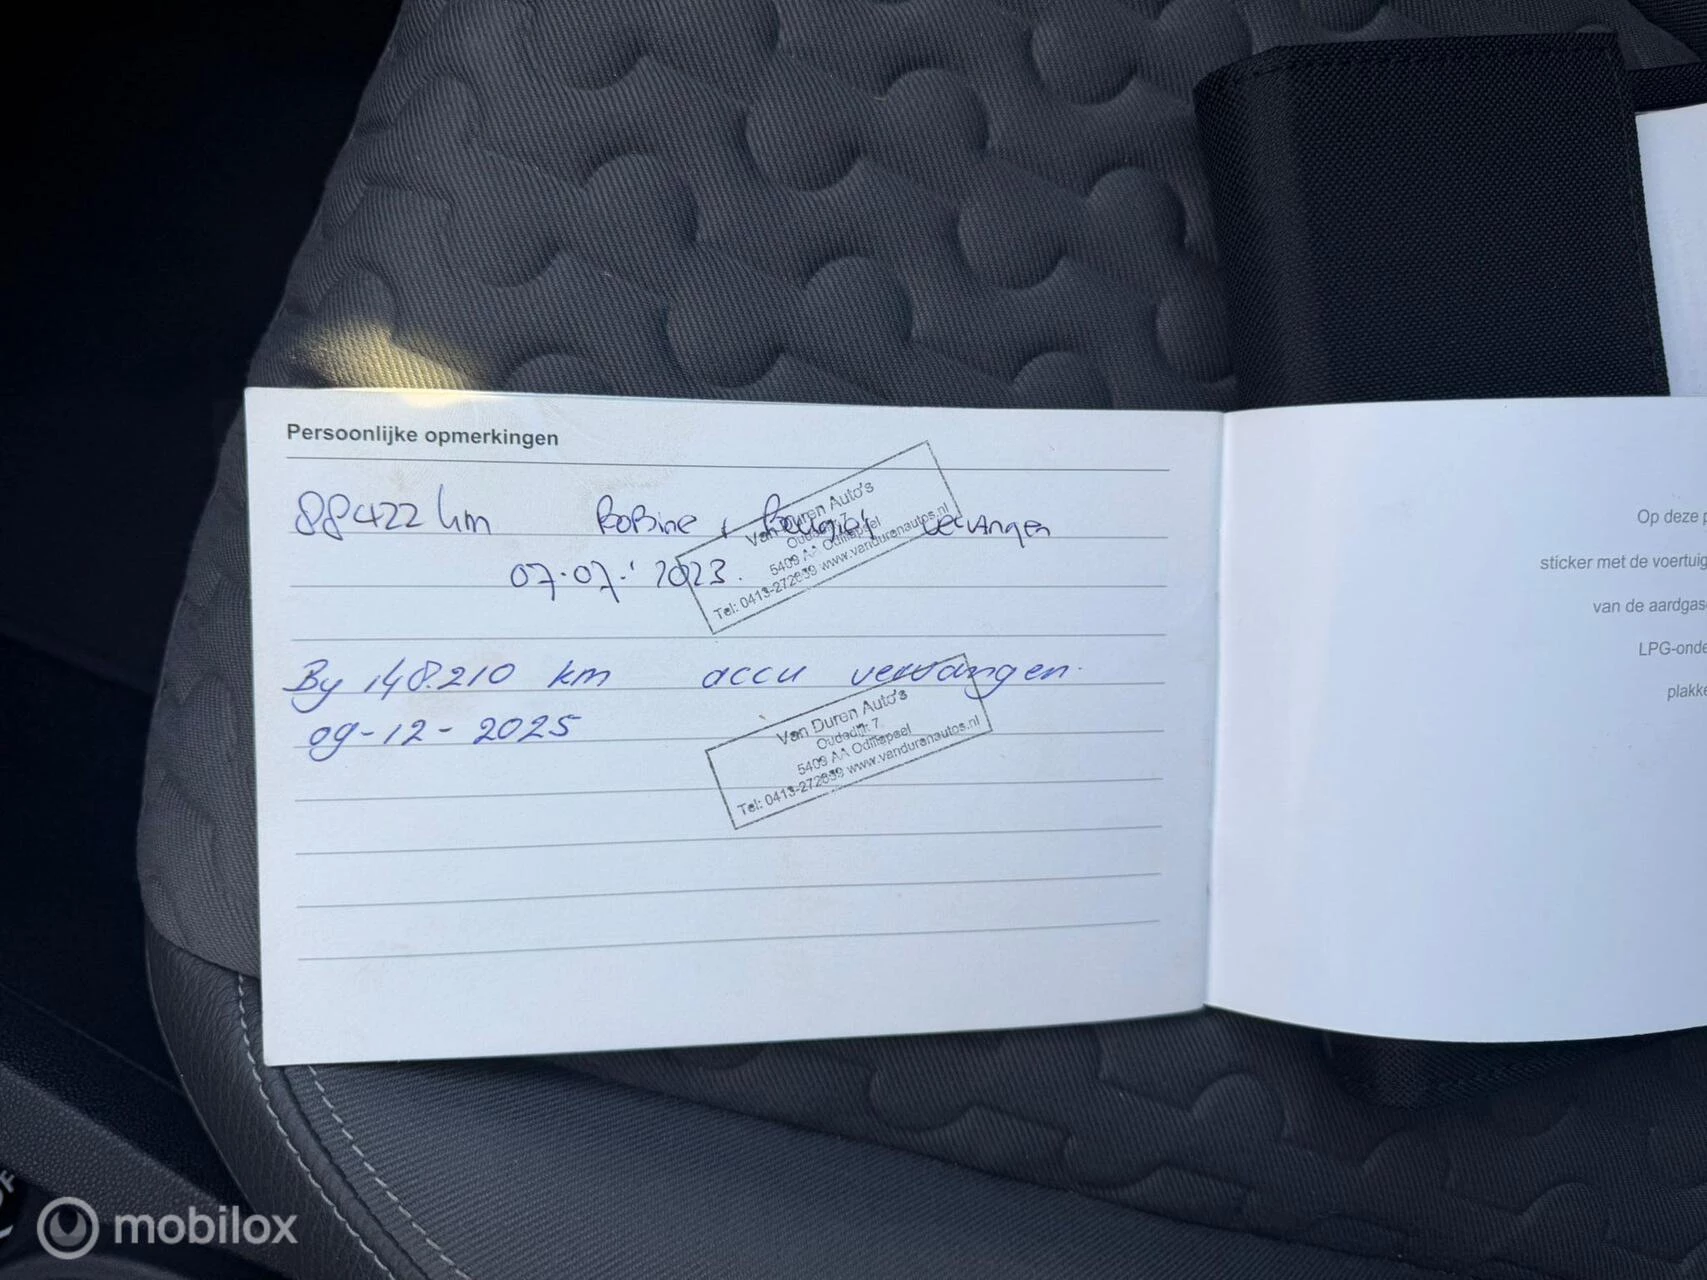 Persoonlijke opmerkingen
88422 km Bobine + Bougies vervangen
07-07-'2023.
Van Duren Auto's
7
5409 AA Odiliapeel
Tel: 0413-272639 www.vandurenautos.nl
By 148.210 km accu vervangen.
09-12-2025
Van Duren Auto's
Oudedijk 7
5409 AA Odiliapeel
Tel: 0413-272639 www.vandurenautos.nl
Op deze
sticker met de voertuig
van de aardgas
LPG-onde
plakke
mobilox